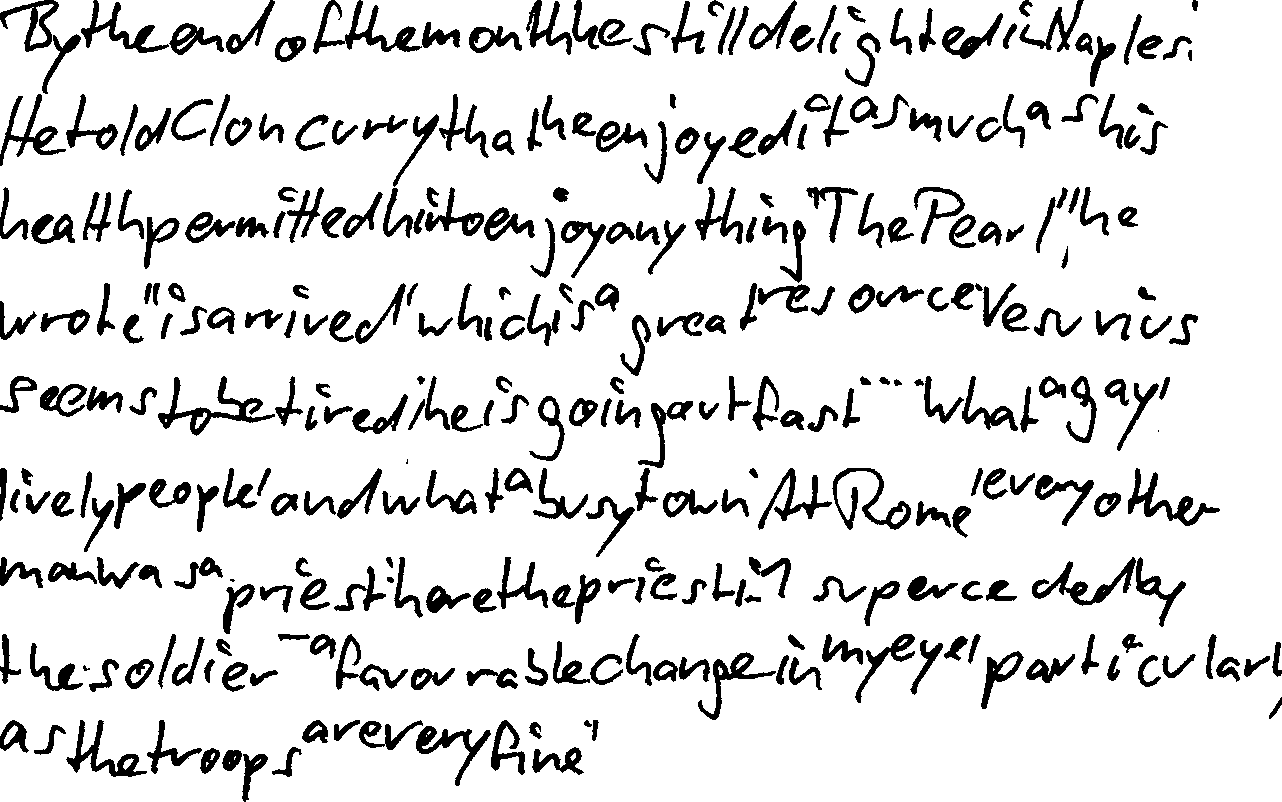 By the end of the month he still delighted in Naples.
He told Cloncurry that he enjoyed it as much as his
health permitted him to enjoy anything "The Pearl", he
wrote "is arrived' which is a great resource Vesuvius
seems to be tired, he is going out fast .... What a gay,
lively people, and what a busy town. At Rome, every other
man was a priest, here the priest is superceded by
the soldier - a favourable change in my eye, particularly
as the troops are very fine"